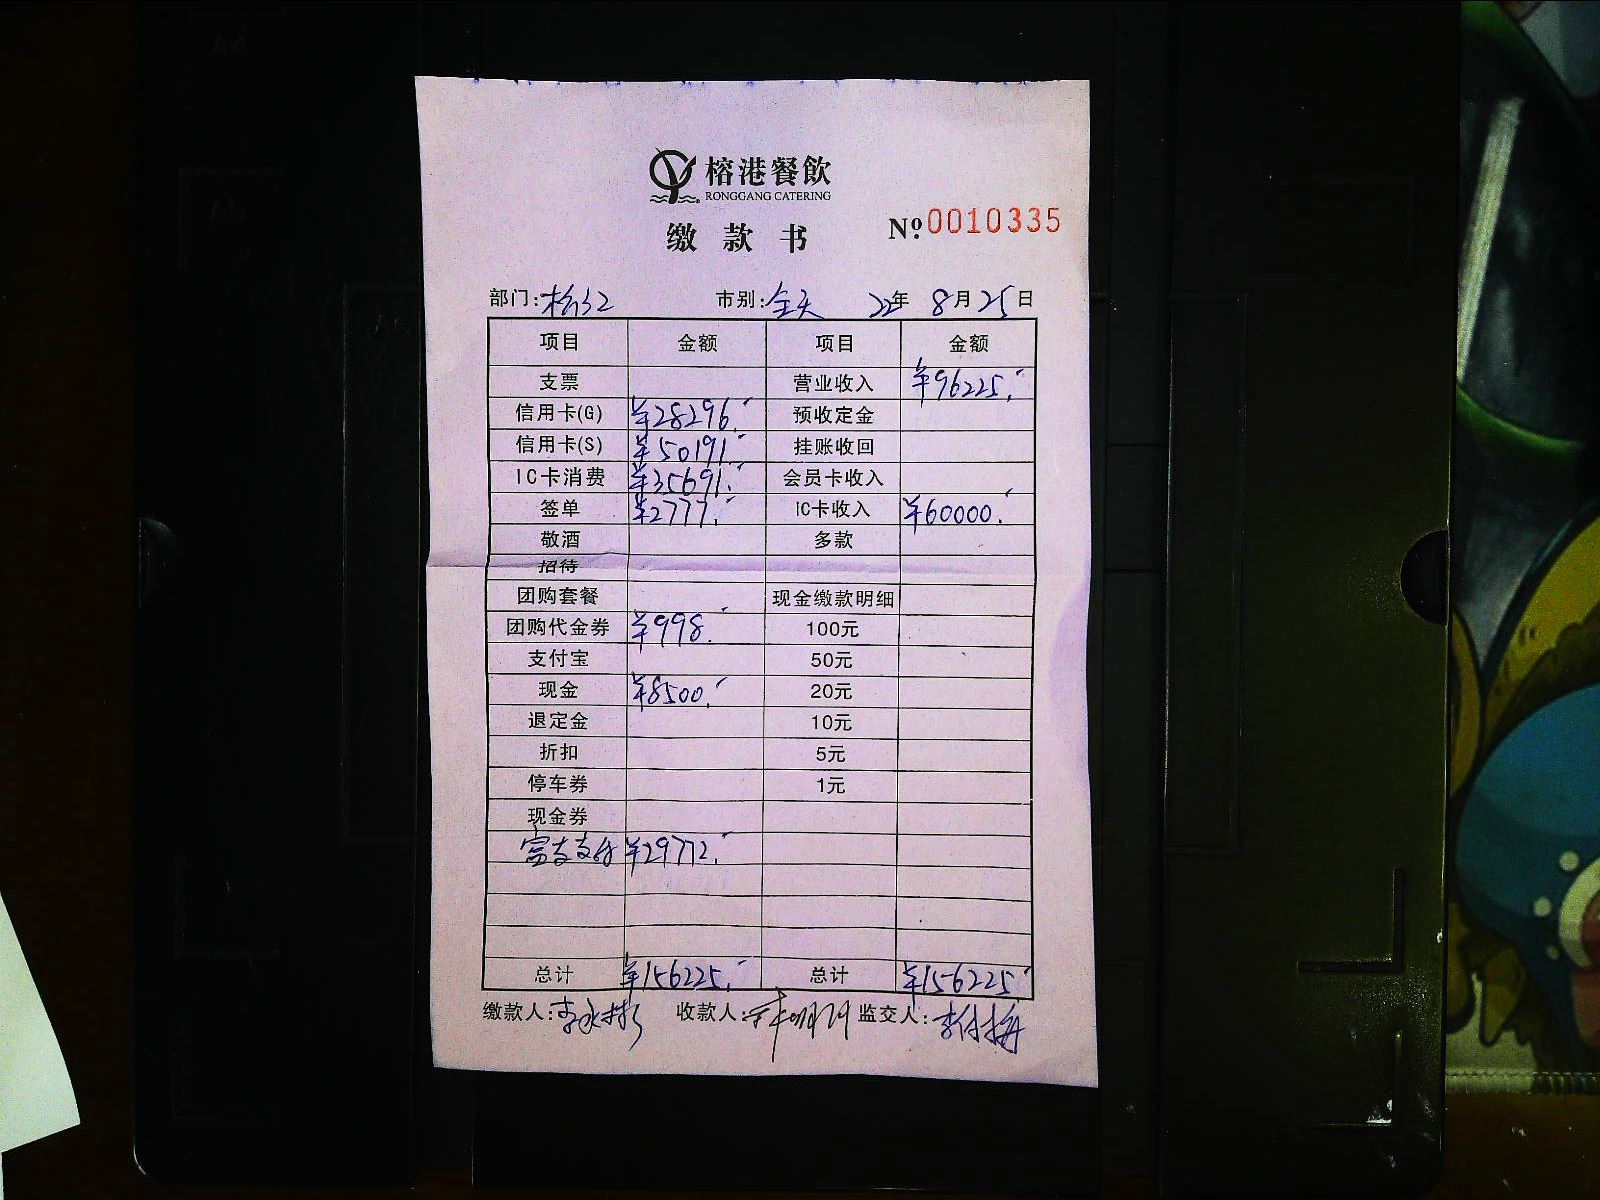 榕港餐飲
RONGGANG CATERING
缴款书 Nº 0010335
部门: 市别:全天 22年 8月25日
项目 金额 项目 金额
支票 营业收入 ¥96225.-
信用卡(G) ¥28296.- 预收定金
信用卡(S) ¥50191.- 挂账收回
IC卡消费 ¥35691.- 会员卡收入
签单 ¥2777.- IC卡收入 ¥60000.-
敬酒 多款
招待
团购套餐 现金缴款明细
团购代金券 ¥998.- 100元
支付宝 50元
现金 ¥8500.- 20元
退定金 10元
折扣 5元
停车券 1元
现金券
富友支付 ¥29772.-
总计 ¥156225.- 总计 ¥156225.-
缴款人: 收款人: 监交人:李付梅